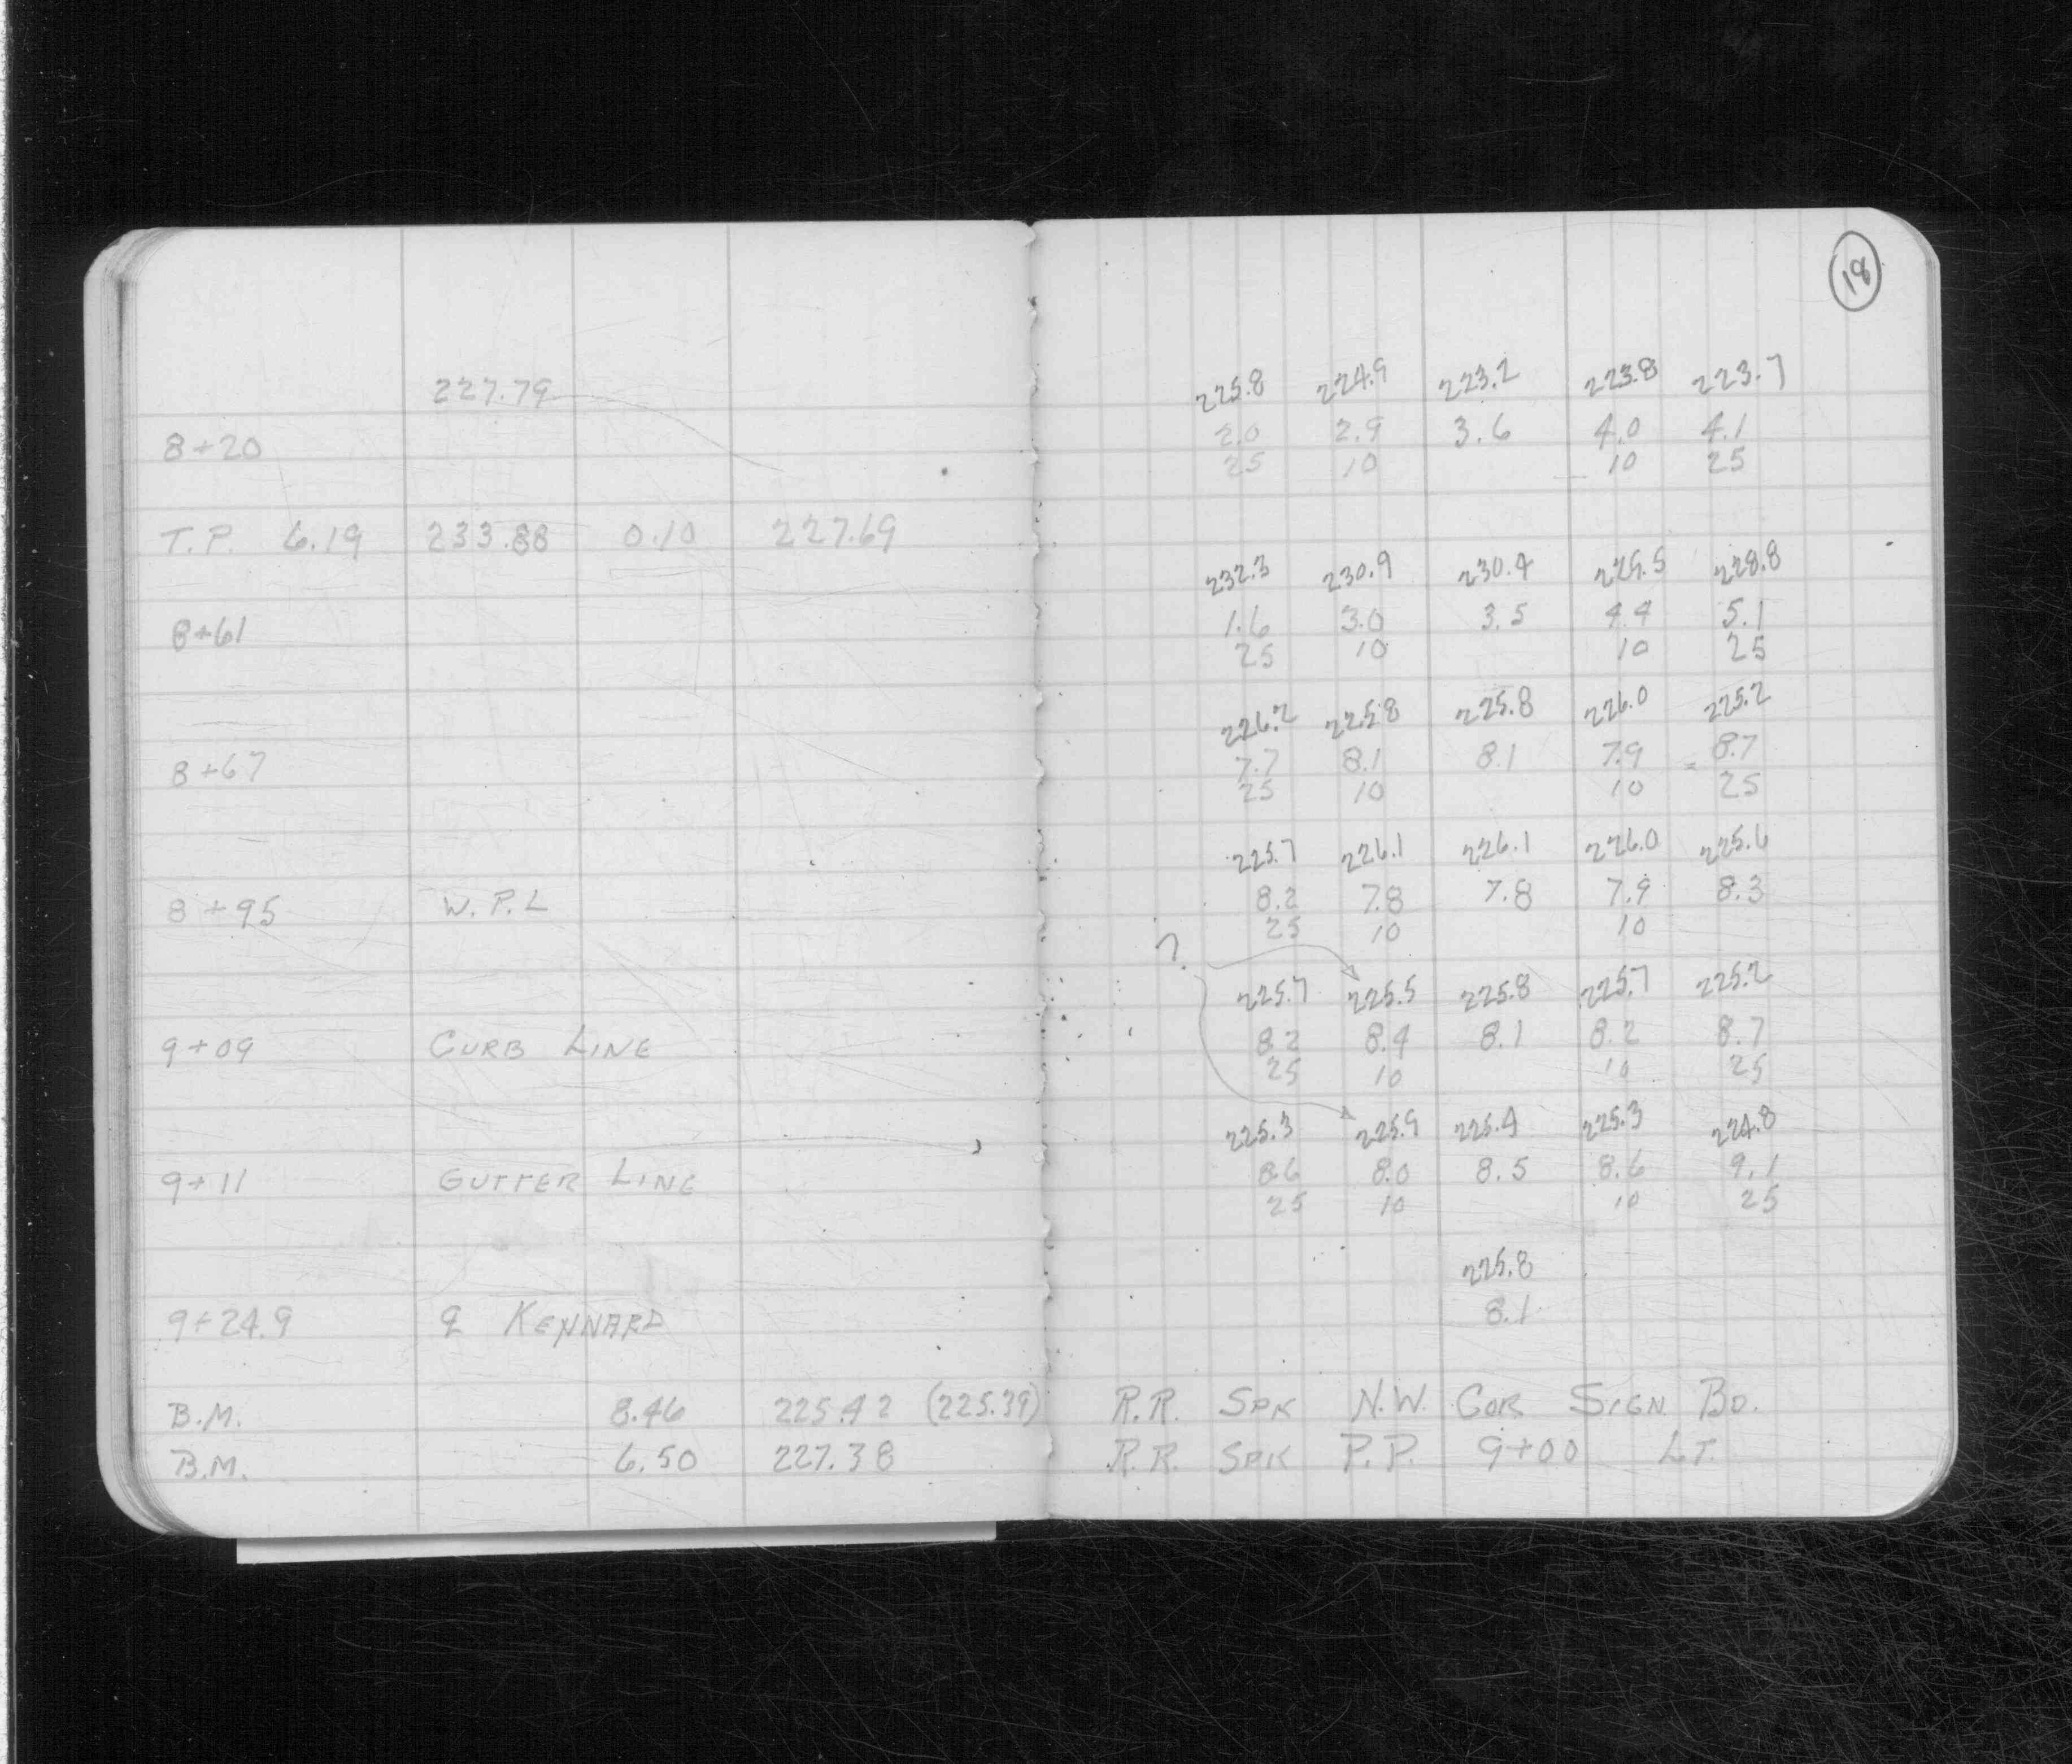 18
227.79
225.8 224.9 223.2 223.8 223.7
8+20 2.0 2.9 3.6 4.0 4.1
25 10 10 25
T.P. 6.19 233.88 0.10 227.69
232.3 230.9 230.4 229.5 228.8
8+61 1.6 3.0 3.5 4.4 5.1
25 10 10 25
226.2 225.8 225.8 226.0 225.2
8+67 7.7 8.1 8.1 7.9 8.7
25 10 10 25
225.7 226.1 226.1 226.0 225.6
8+95 W.P.L 8.2 7.8 7.8 7.9 8.3
25 10 10
?
225.7 225.5 225.8 225.7 225.2
9+09 CURB LINE 8.2 8.4 8.1 8.2 8.7
25 10 10 25
225.3 225.9 225.4 225.3 224.8
9+11 GUTTER LINE 8.6 8.0 8.5 8.6 9.1
25 10 10 25
225.8
9+24.9 ℄ KENNARD 8.1
B.M. 8.46 225.42 (225.39) R.R. SPK N.W. COR SIGN BD.
B.M. 6.50 227.38 R.R. SPK P.P. 9+00 LT.